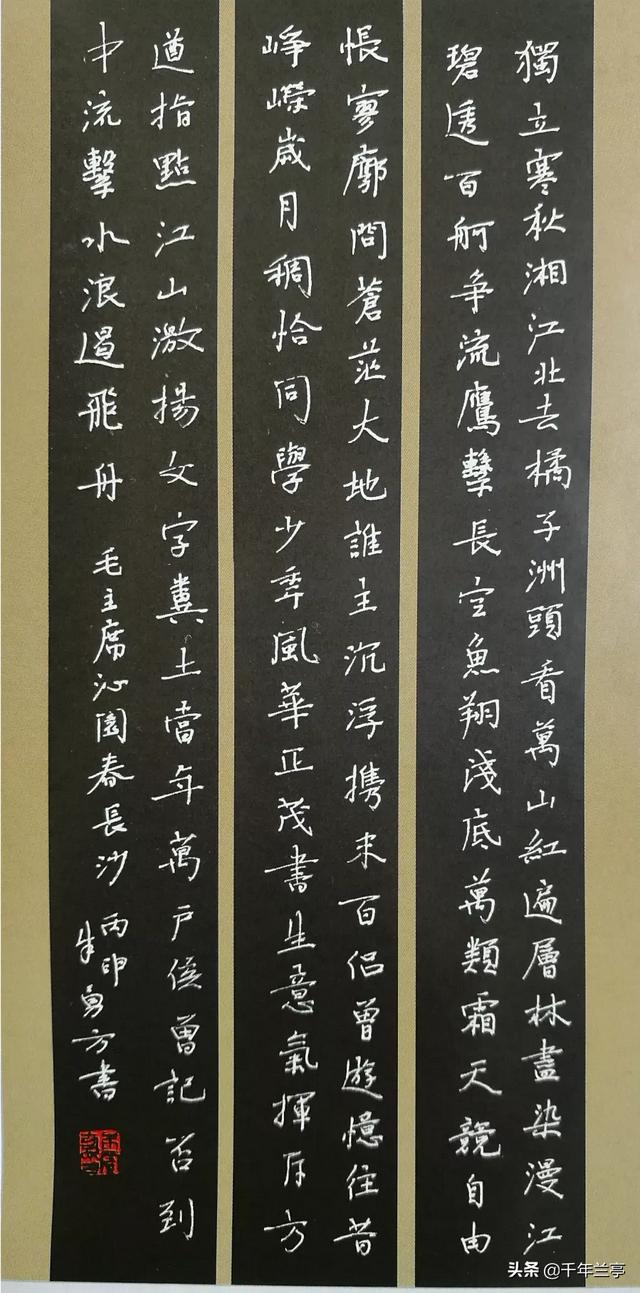 獨立寒秋湘江北去橘子洲頭看萬山紅遍層林盡染漫江
碧透百舸爭流鷹擊長空魚翔淺底萬類霜天競自由
悵寥廓問蒼茫大地誰主沉浮攜來百侶曾遊憶往昔
崢嶸歲月稠恰同學少年風華正茂書生意氣揮斥方
遒指點江山激揚文字糞土當年萬戶侯曾記否到
中流擊水浪遏飛舟
毛主席沁園春長沙
丙申
朱勇方書
头条 @千年兰亭